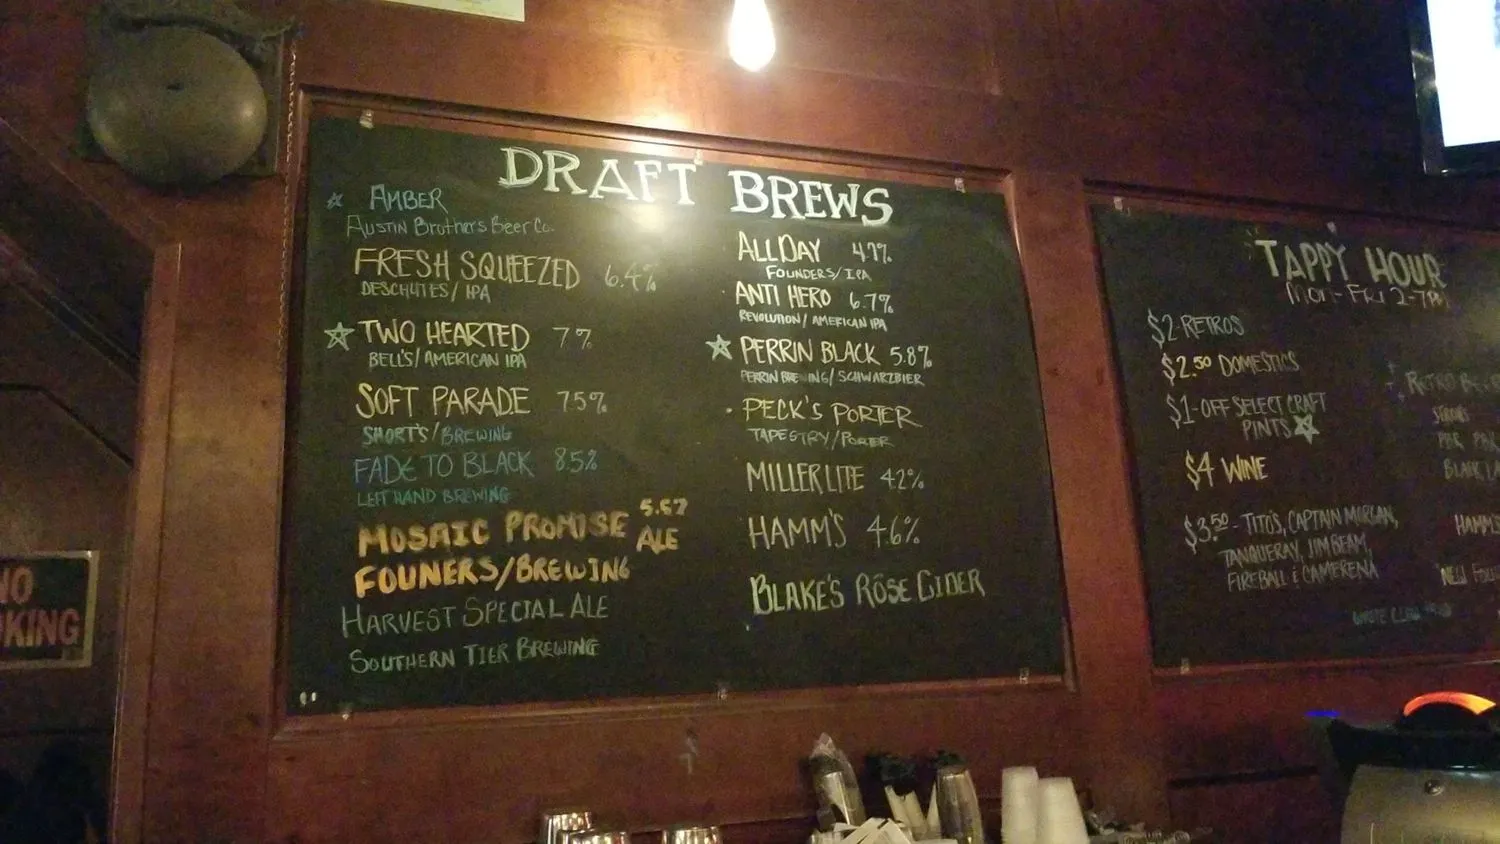 DRAFT BREWS
☆ AMBER
AUSTIN BROTHERS BEER CO.
FRESH SQUEEZED 6.4%
DESCHUTES/ IPA
☆ TWO HEARTED 7%
BELL'S/ AMERICAN IPA
SOFT PARADE 7.5%
SHORT'S/ BREWING
FADE TO BLACK 8.5%
LEFT HAND BREWING
MOSAIC PROMISE 5.5%
ALE
FOUNERS/BREWING
HARVEST SPECIAL ALE
SOUTHERN TIER BREWING
ALL DAY 4.7%
FOUNDERS/ IPA
ANTI HERO 6.7%
REVOLUTION/ AMERICAN IPA
☆ PERRIN BLACK 5.8%
PERRIN BREWING/ SCHWARZBIER
PECK'S PORTER
TAPESTRY/ PORTER
MILLER LITE 4.2%
HAMM'S 4.6%
BLAKE'S RŌSE CIDER
"TAPPY" HOUR
MON-FRI 2-7PM
$2-RETROS
$2.50 DOMESTICS
$1-OFF SELECT CRAFT
PINTS ☆
$4 WINE
$3.50 - TITO'S, CAPTAIN MORGAN,
TANQUERAY, JIM BEAM,
FIREBALL & CAMERENA
RETRO
HAMM'S
NO